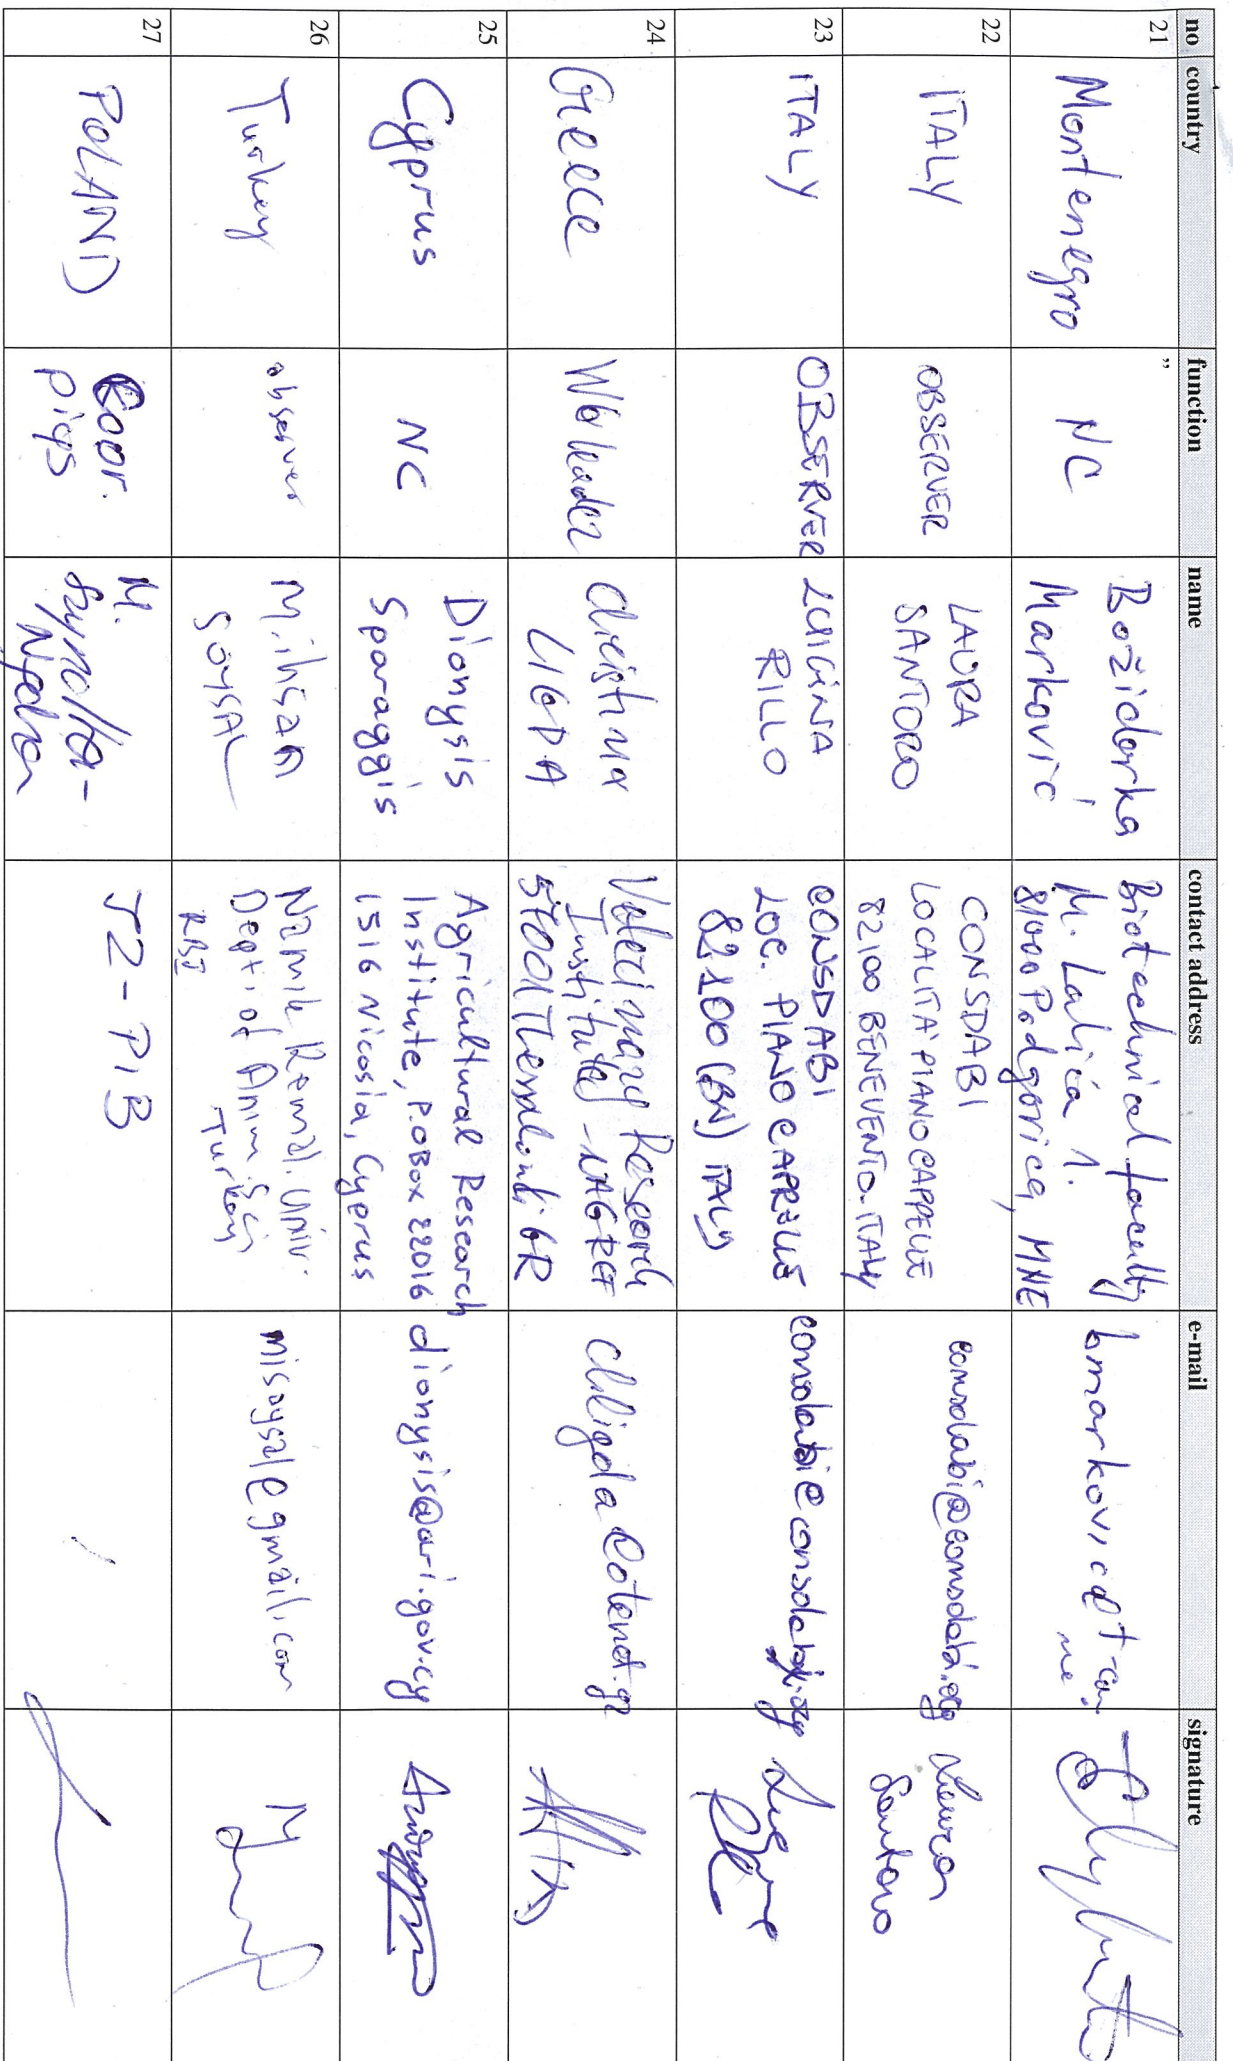 no country function name contact address e-mail signature
21 Montenegro " NC Božidarka
Marković Biotechnical faculty
M. Lalića 1.
81000 Podgorica, MNE bmarkovic@t-com.
me
22 ITALY OBSERVER LAURA
SANTORO CONSDABI
LOCALITA' PIANO CAPPELLE
82100 BENEVENTO-ITALY consdabi@consdabi.org Laura
Santoro
23 ITALY OBSERVER LUIGINA
RILLO CONSDABI
LOC. PIANO CAPPELLE
82100 (BN) ITALY consdabi@consdabi.org
24 Greece Christina
LIGDA Veterinary Research
Institute - NAGREF
57001 Thessaloniki GR chligda@otenet.gr
25 Cyprus NC Dionysis
Sparaggis Agricultural Research
Institute, P.O.Box 22016
1516 Nicosia, Cyprus dionysis@ari.gov.cy
26 Turkey observer M. ihsan
SOYSAL Namık Kemal. Univ.
Dept. of Anim. Sci
Turkey misoysal@gmail.com
27 POLAND Coor.
pigs M. IZ-PIB